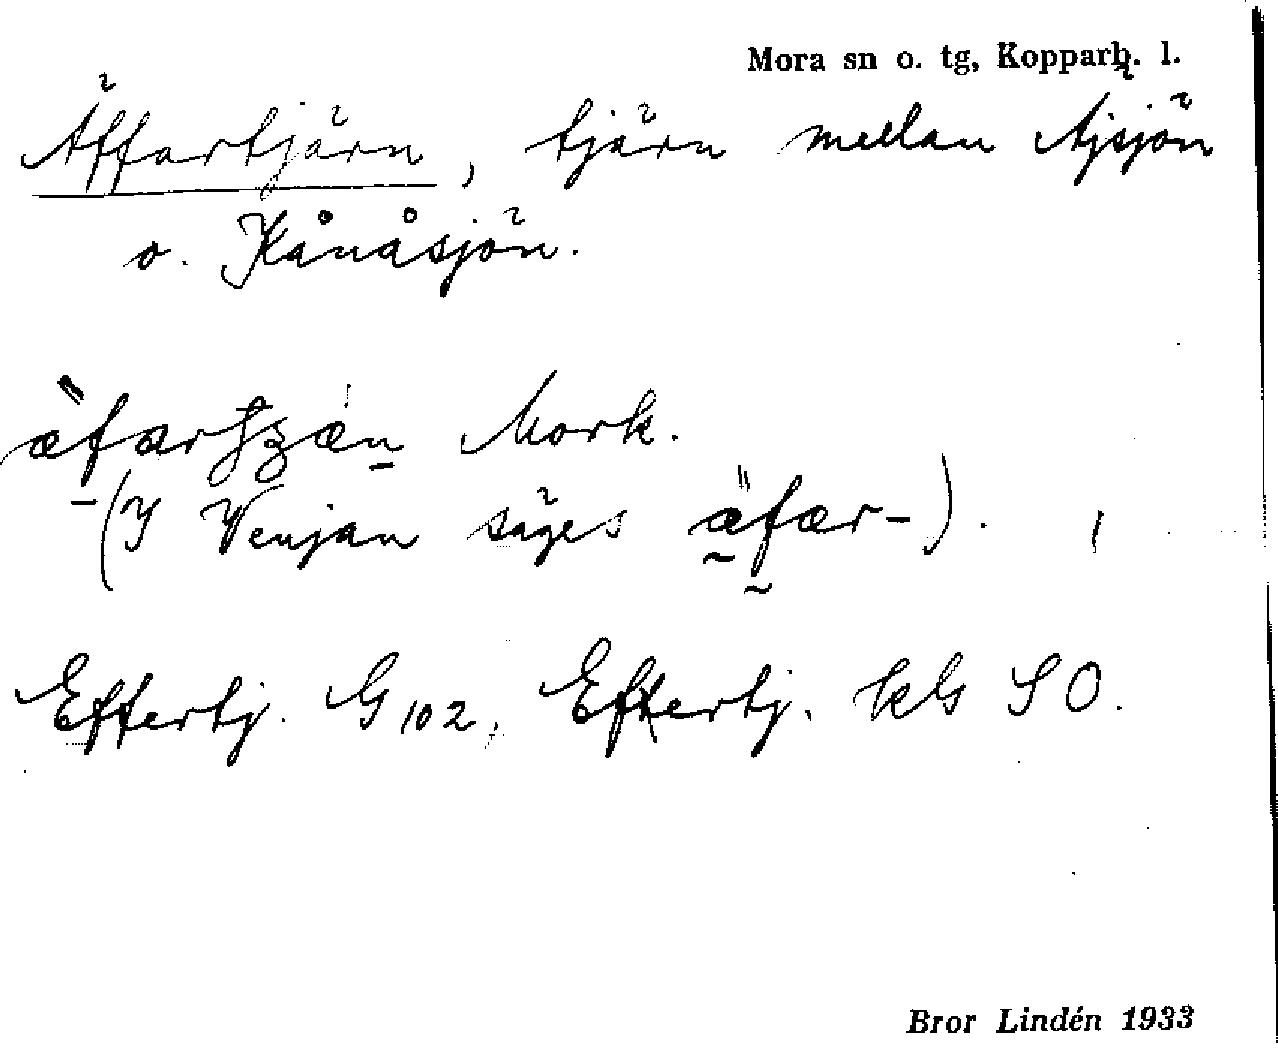 Mora sn o. tg, Kopparb. l.
Äffartjärn, tjärn mellan Ajsjön
o. Kånåsjön.
Mork.
(I Venjan säges äfær-).
Effertj. G 102, Eftertj. kG SO.
Bror Lindén 1933